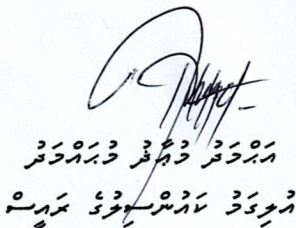 އަޙްމަދު މުޢާޛު މުޙައްމަދު
އުލިގަމު ކައުންސިލުގެ ރައީސް